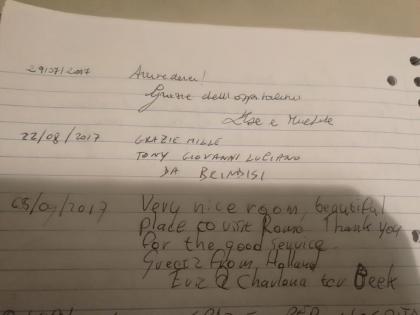 29/07/2017 Arrivederci!
Grazie dell'ospitalità
e Michele
22/08/2017 GRAZIE MILLE
TONY GIOVANNI LUCIANO
DA BRINDISI
03/09/2017 Very nice room, beautiful
place to visit Roma Thank you
for the good service.
Guests from Holland
ter Beek